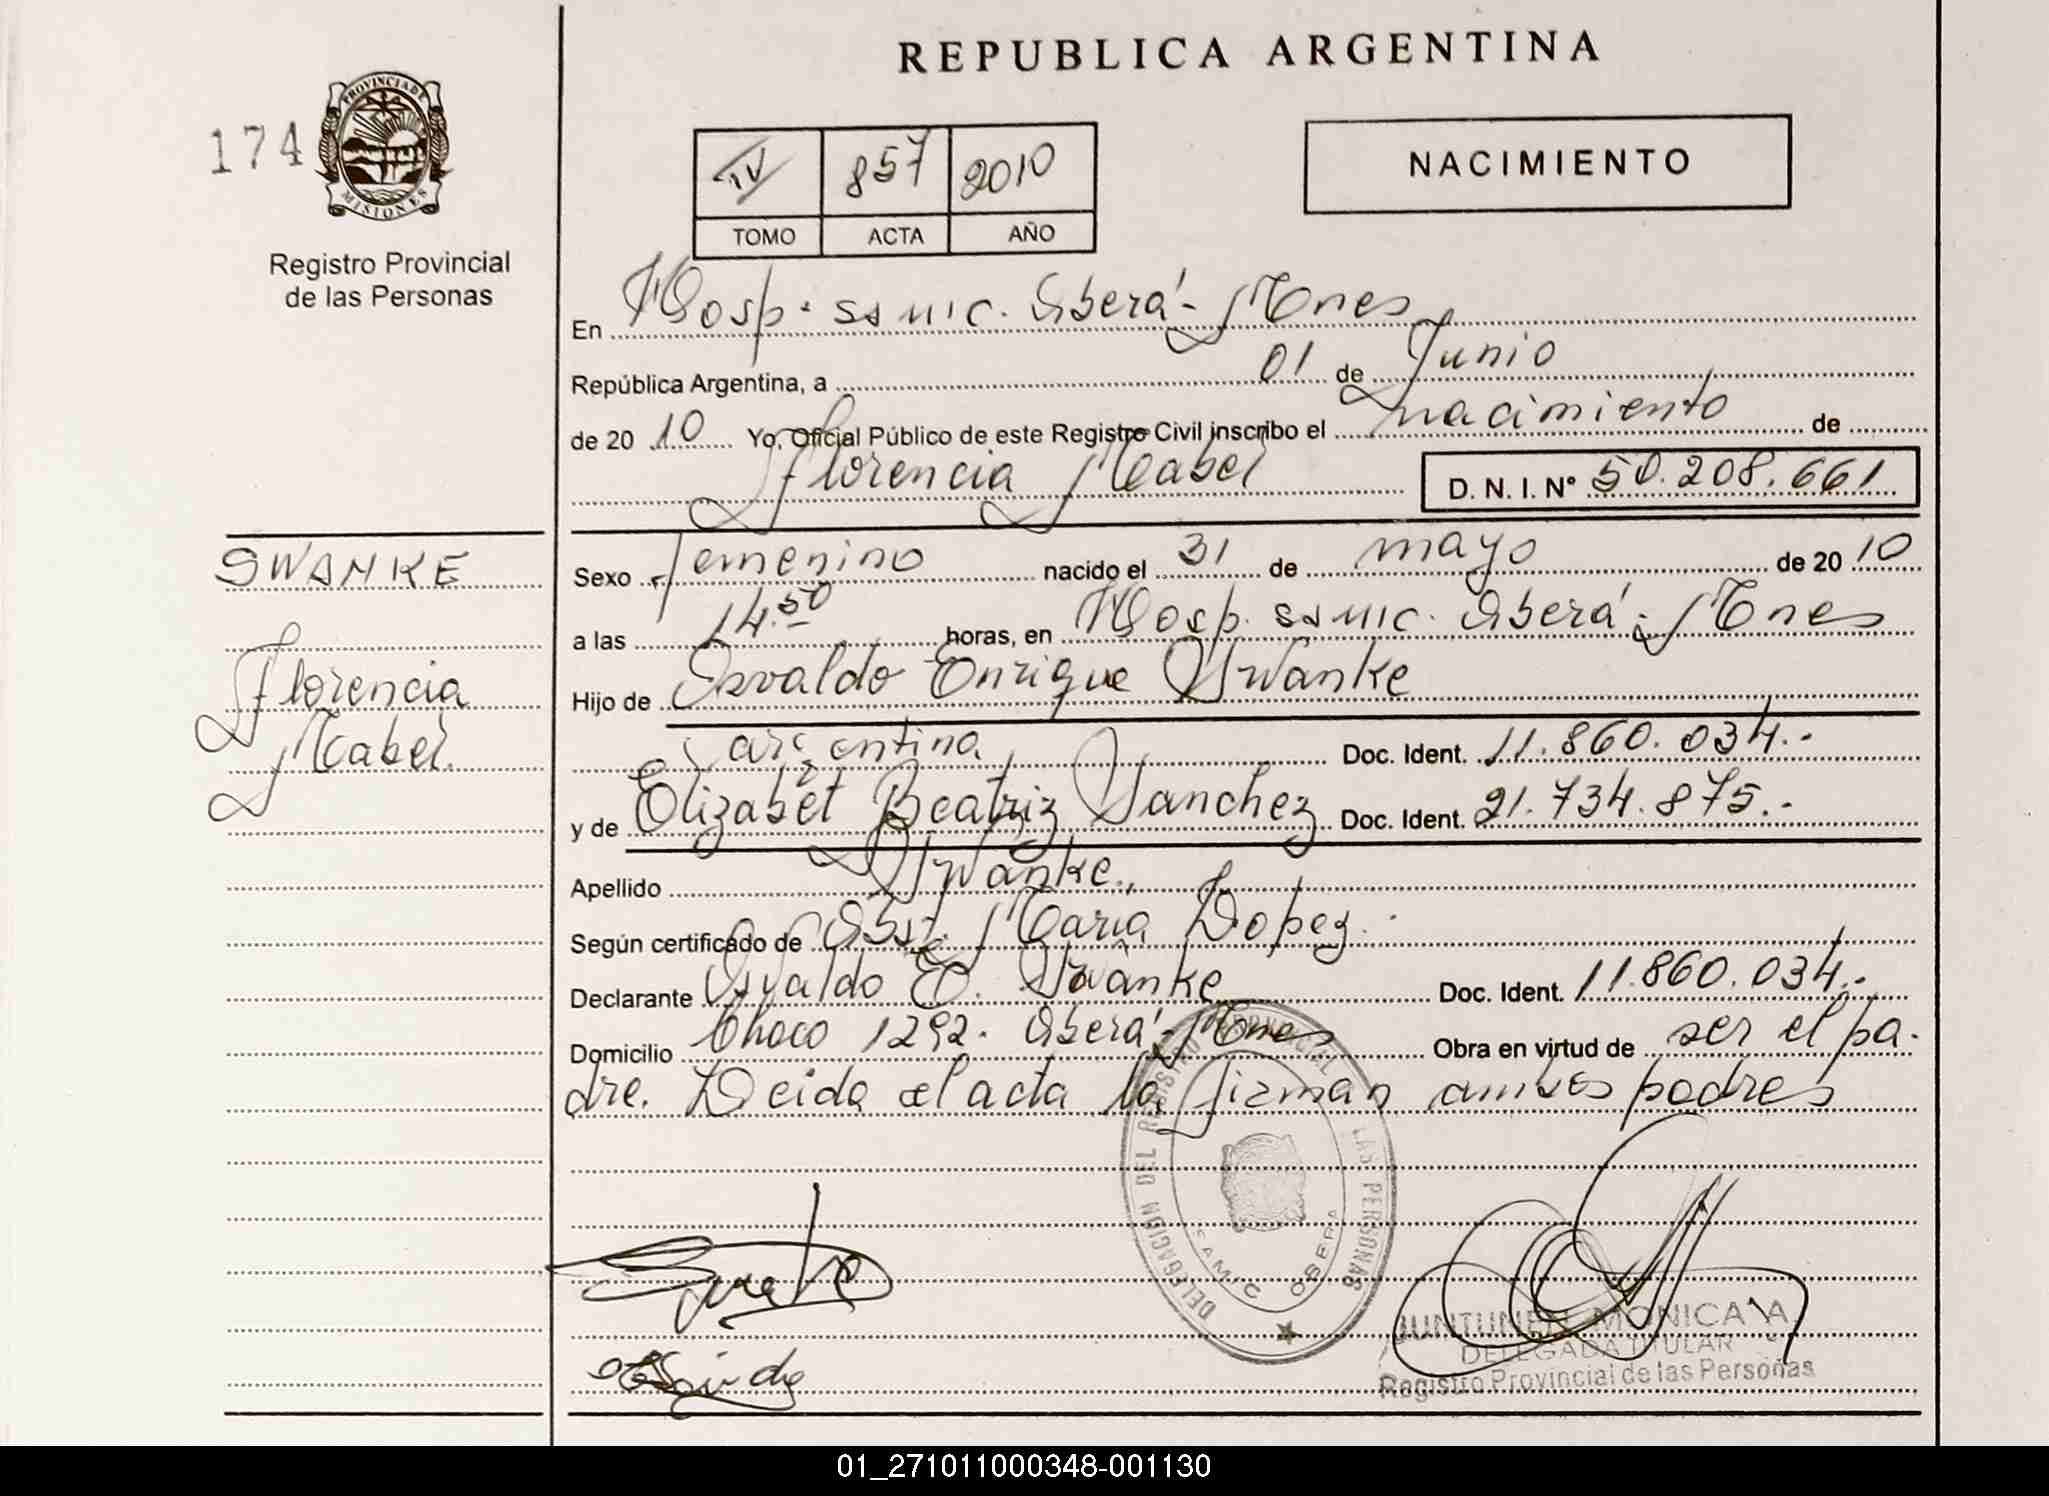 REPUBLICA ARGENTINA
174
PROVINCIA DE
MISIONES
Registro Provincial
de las Personas
IV 857 2010
TOMO ACTA AÑO
NACIMIENTO
En Hosp. Samic. Oberá - Mnes
República Argentina, a 01 de Junio
de 20 10 Yo, Oficial Público de este Registro Civil inscribo el nacimiento de
Florencia Mabel D. N. I. Nº 50.208.661
SWANKE
Florencia
Mabel.
Sexo femenino nacido el 31 de mayo de 20 10
a las 14.50 horas, en Hosp. Samic. Oberá - Mnes
Hijo de Osvaldo Enrique Swanke
argentina Doc. Ident. 11.860.034.-
y de Elizabet Beatriz Sanchez Doc. Ident. 21.734.875.-
Apellido Swanke.
Según certificado de Obst. Maria Lopez.
Declarante Osvaldo E. Swanke Doc. Ident. 11.860.034.-
Domicilio Chaco 1292. Oberá - Mnes Obra en virtud de ser el pa-
dre. Leida el acta la firman ambos padres
DELEGACION DEL REGISTRO PROVINCIAL LAS PERSONAS
SAMIC OBERA
JUNTUNEN MONICA A
DELEGADA TITULAR
Registro Provincial de las Personas
01_271011000348-001130